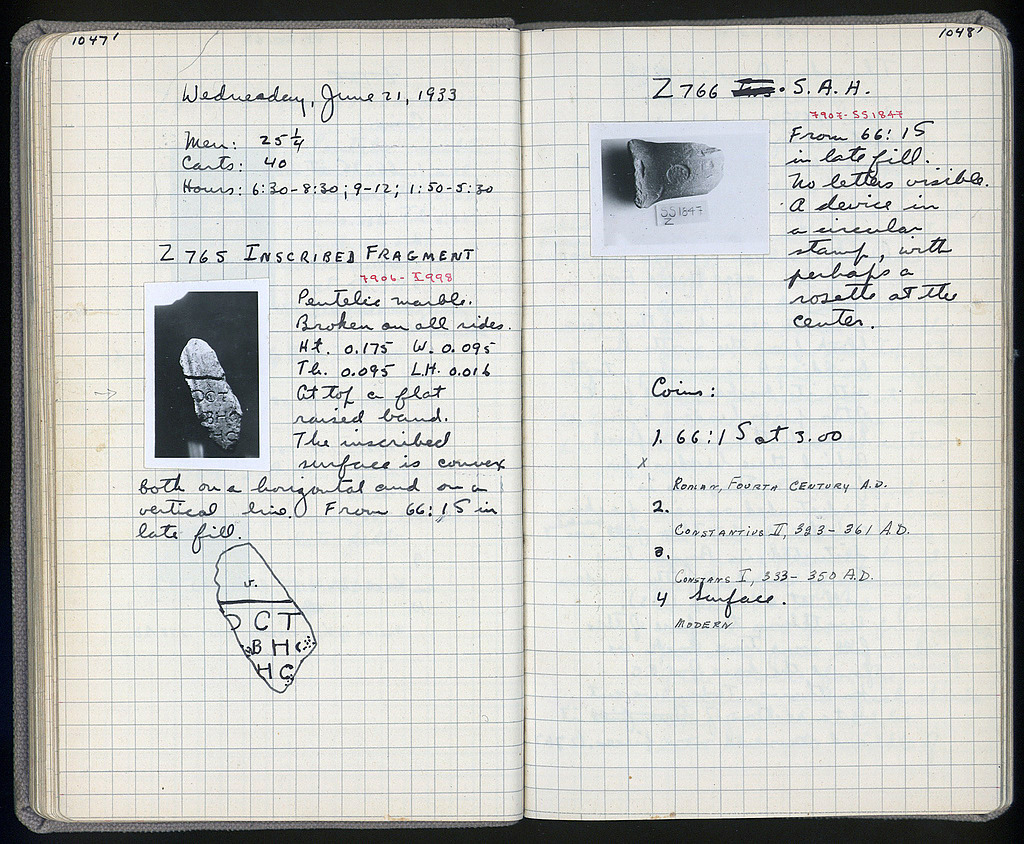 1047'
Wednesday, June 21, 1933
Men: 25 1/4
Carts: 40
Hours: 6:30-8:30; 9-12; 1:50-5:30
Z 765 INSCRIBED FRAGMENT
7906 - I 998
Pentelic marble.
Broken on all sides.
Ht. 0.175 W. 0.095
Th. 0.095 L.H. 0.016
At top a flat
raised band.
The inscribed
surface is convex
both on a horizontal and on a
vertical line. From 66:15 in
late fill.
v.
Ο C T
B H C
H C
1048'
Z 766 S.A.H.
7907 - SS 1847
From 66:15
in late fill.
No letters visible.
A device in
a circular
stamp, with
perhaps a
rosette at the
center.
SS 1847
Z
Coins:
1. 66:15 at 3.00
x
ROMAN, FOURTH CENTURY A.D.
2.
CONSTANTIUS II, 323-361 A.D.
3.
CONSTANS I, 333-350 A.D.
4 Surface.
MODERN